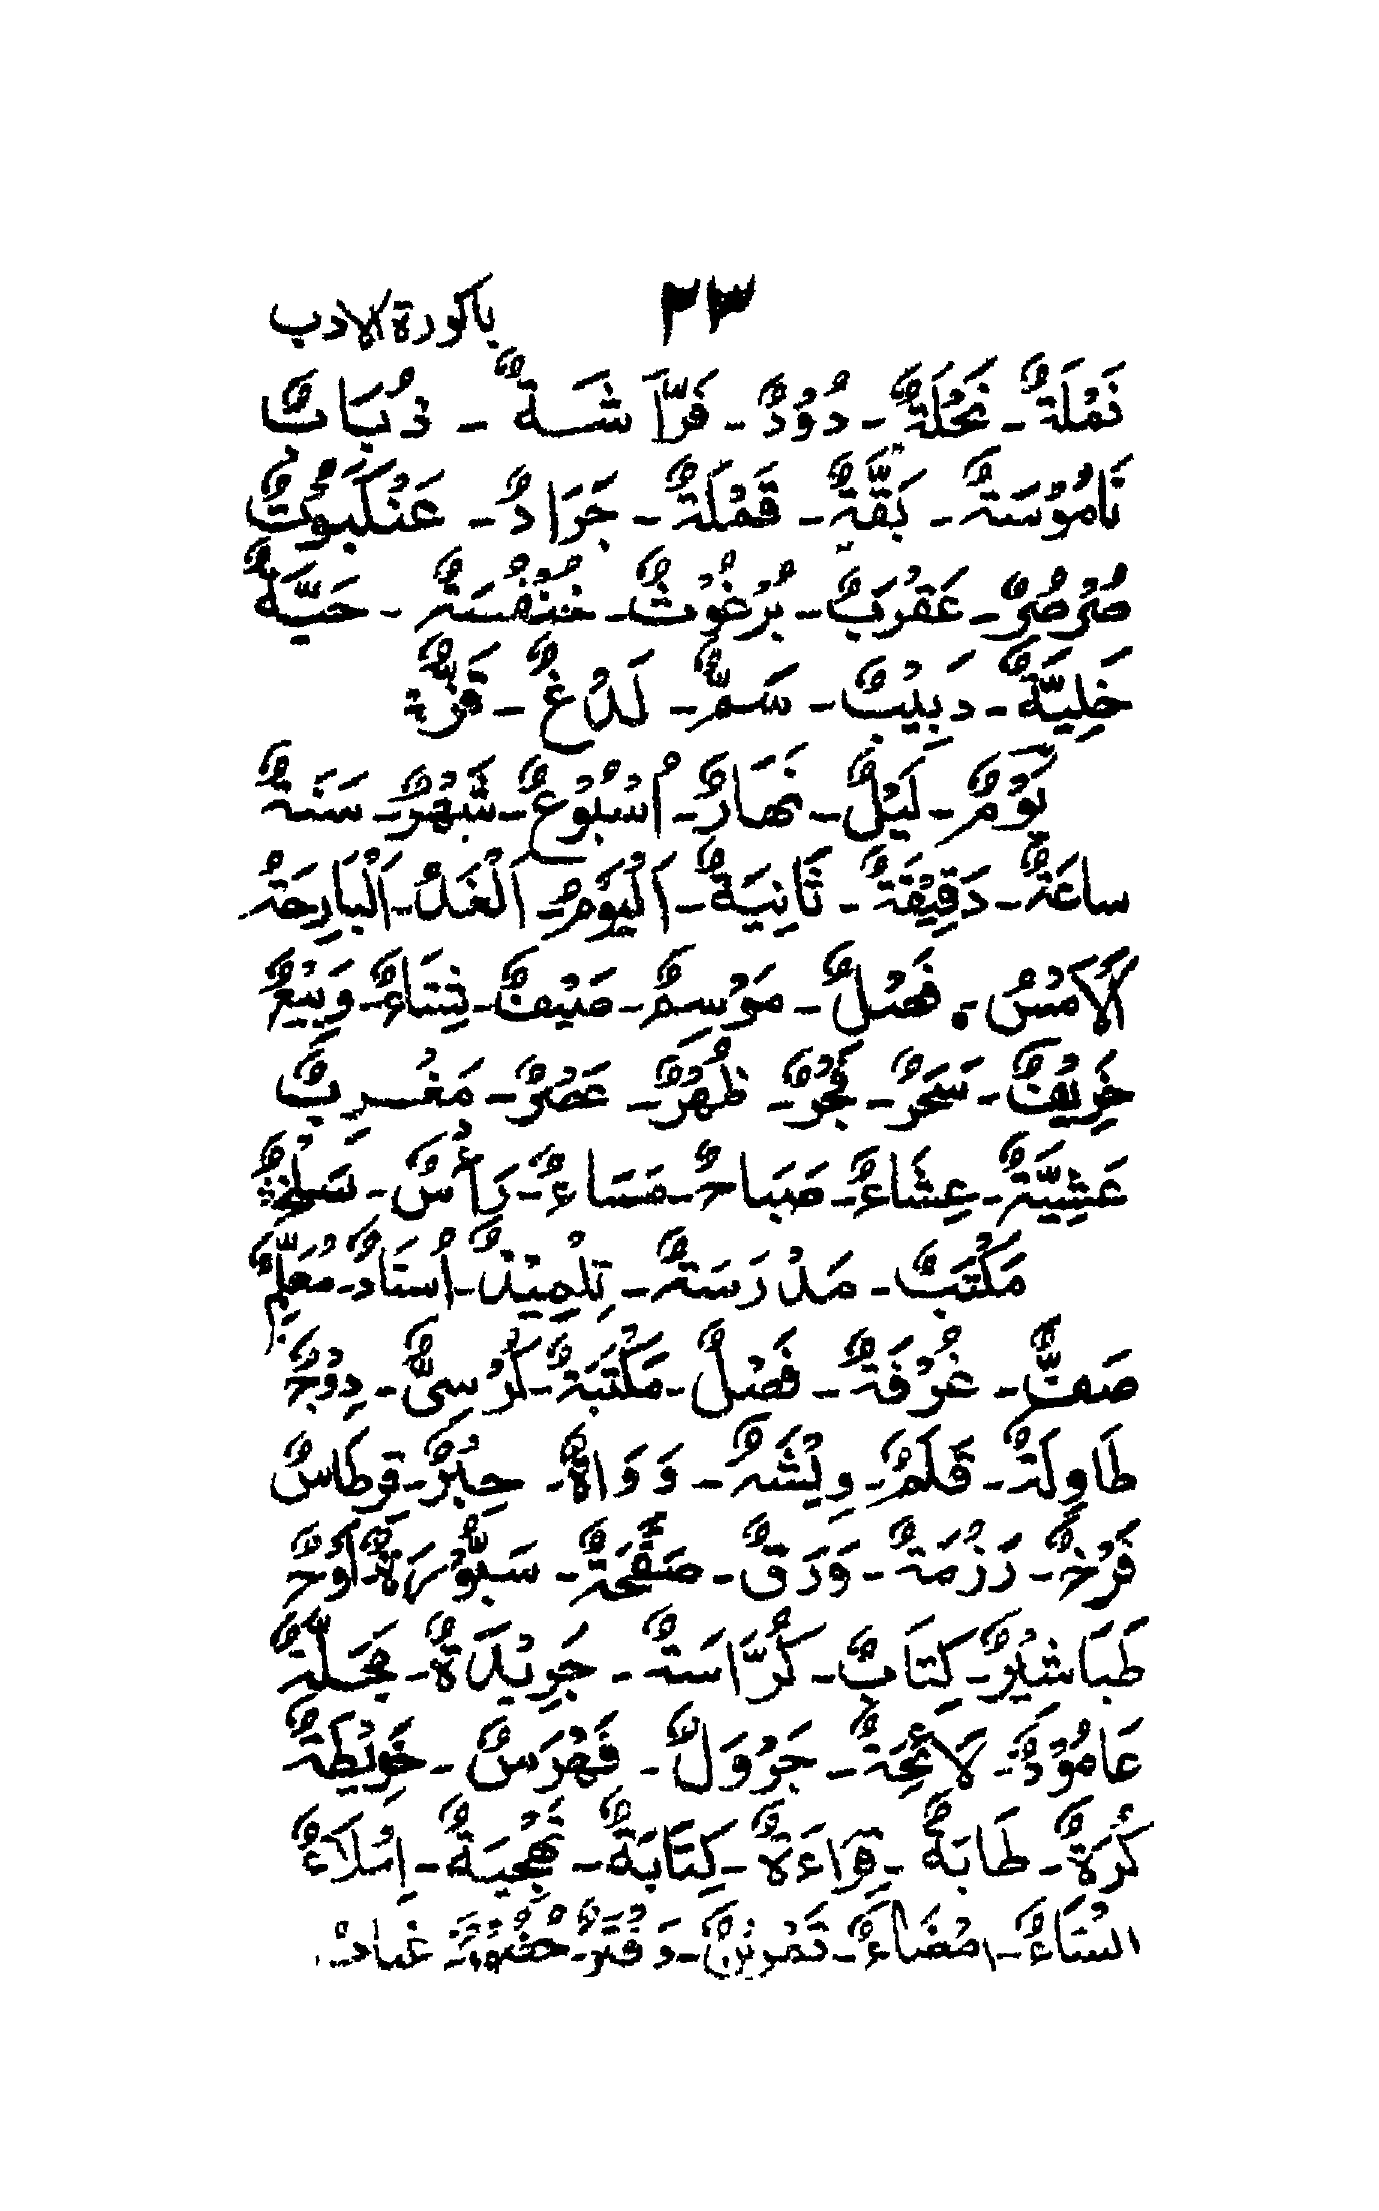 باكورة الادب ٢٣
نَمْلَةٌ - نَحْلَةٌ - دُوْدٌ - فَرَّاشَةٌ - ذُبَابٌ
نَامُوْسَةٌ - بَقَّةٌ - قَمْلَةٌ - جَرَادٌ - عَنْكَبُوْتٌ
صُرْصُرٌ - عَقْرَبٌ - بُرْغُوْثٌ - خُنْفُسَةٌ - حَيَّةٌ
خَلِيَّةٌ - دَبِيْبٌ - سَمٌّ - لَدْغٌ - قَزٌّ
يَوْمٌ - لَيْلٌ - نَهَارٌ - اُسْبُوْعٌ - شَهْرٌ - سَنَةٌ
ساعَةٌ - دَقِيْقَةٌ - ثَانِيَةٌ - اَلْيَوْمُ - اَلْغَدُ - اَلْبَارِحَةُ
اَلْاَمْسُ - فَصْلٌ - مَوْسِمٌ - صَيْفٌ - شِتَاءٌ - رَبِيْعٌ
خَرِيْفٌ - سَحَرٌ - فَجْرٌ - ظُهْرٌ - عَصْرٌ - مَغْرِبٌ
عَشِيَّةٌ - عِشَاءٌ - صَبَاحٌ - مَسَاءٌ - رَأْسٌ - سَلْخٌ
مَكْتَبٌ - مَدْرَسَةٌ - تِلْمِيْذٌ - اُسْتَاذٌ - مُعَلِّمٌ
صَفٌّ - غُرْفَةٌ - فَصْلٌ - مَكْتَبَةٌ - كُرْسِيٌّ - دِرْجٌ
طَاوِلَةٌ - قَلَمٌ - رِيْشَةٌ - دَوَاةٌ - حِبْرٌ - قِرطَاسٌ
فَرْخٌ - رَزْمَةٌ - وَرَقٌ - صَفْحَةٌ - سَبُّوْرَةٌ - لَوْحٌ
طَبَاشِيْرٌ - كِتَابٌ - كُرَّاسَةٌ - جَرِيْدَةٌ - مَجَلَّةٌ
عَامُوْدٌ - لَائِحَةٌ - جَدْوَلٌ - فَهْرَسٌ - خَرِيْطَةٌ
كُرَةٌ - طَابَةٌ - قِرَاءَةٌ - كِتَابَةٌ - تَهْجِيَةٌ - اِمْلَاءٌ
اِنْشَاءٌ - اِمْضَاءٌ - تَمْرِيْنٌ - دَفْتَرٌ - حُضُوْرٌ - غِيَابٌ